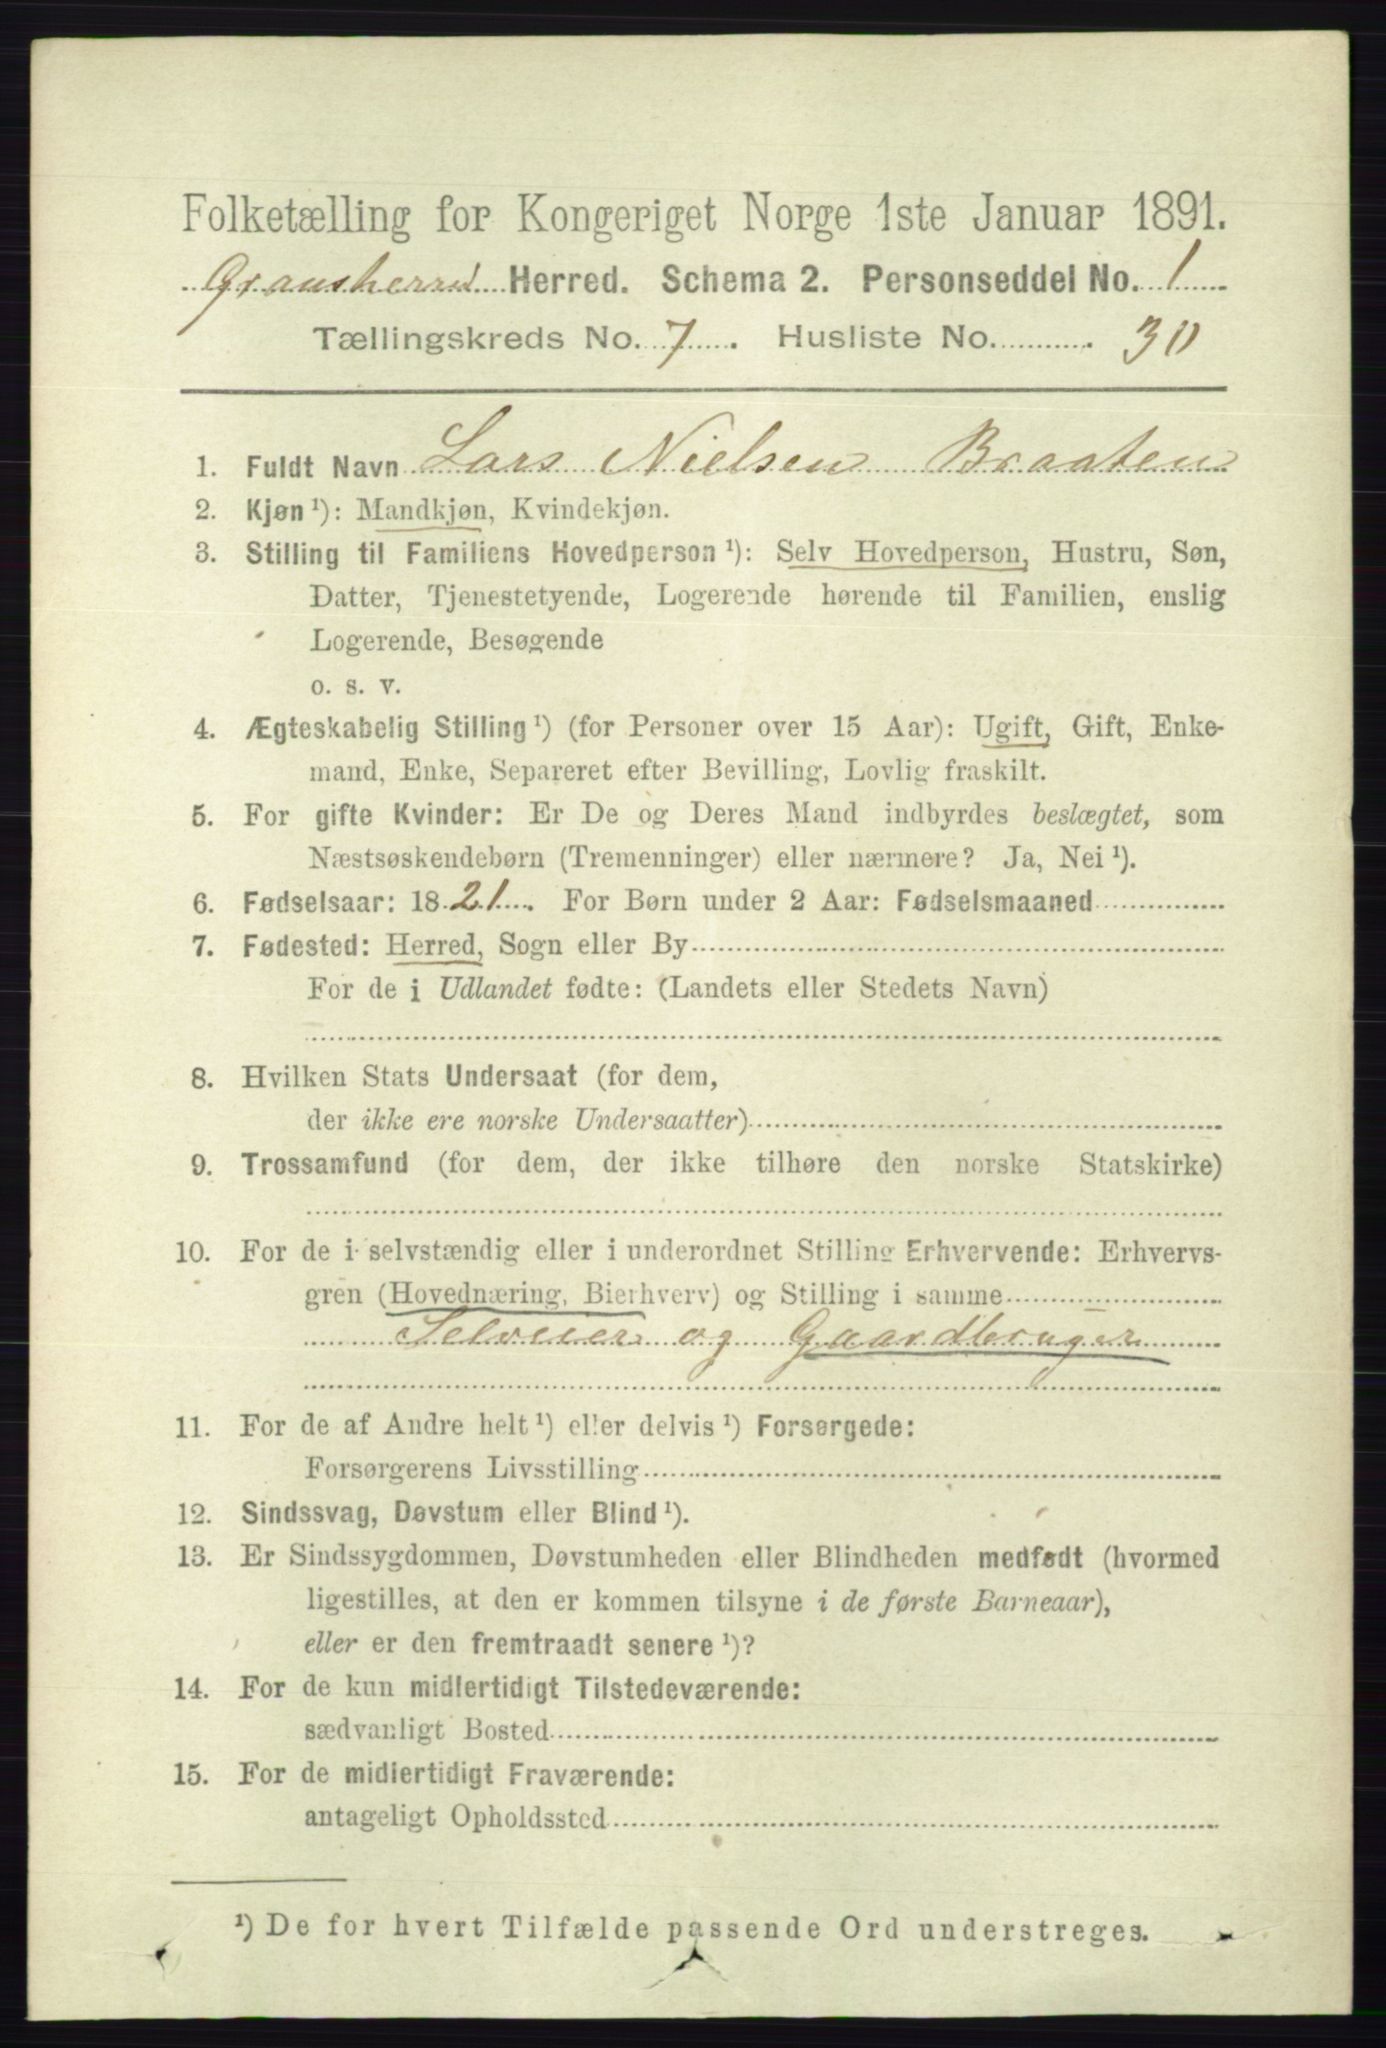 Folketælling for Kongeriget Norge 1ste Januar 1891.
Gransherred Herred. Schema 2. Personseddel No. 1
Tællingskreds No. 7. Husliste No. 30
1. Fuldt Navn Lars Nielsen Braaten
2. Kjøn ¹): Mandkjøn, Kvindekjøn.
3. Stilling til Familiens Hovedperson ¹): Selv Hovedperson, Hustru, Søn,
Datter, Tjenestetyende, Logerende hørende til Familien, enslig
Logerende, Besøgende
o. s. v.
4. Ægteskabelig Stilling ¹) (for Personer over 15 Aar): Ugift, Gift, Enke-
mand, Enke, Separeret efter Bevilling, Lovlig fraskilt.
5. For gifte Kvinder: Er De og Deres Mand indbyrdes beslægtet, som
Næstsøskendebørn (Tremenninger) eller nærmere? Ja, Nei ¹).
6. Fødselsaar: 1821. For Børn under 2 Aar: Fødselsmaaned
7. Fødested: Herred, Sogn eller By
For de i Udlandet fødte: (Landets eller Stedets Navn)
8. Hvilken Stats Undersaat (for dem,
der ikke ere norske Undersaatter)
9. Trossamfund (for dem, der ikke tilhøre den norske Statskirke)
10. For de i selvstændig eller i underordnet Stilling Erhvervende: Erhvervs-
gren (Hovednæring, Bierhverv) og Stilling i samme
Selveier og Gaardbruger
11. For de af Andre helt ¹) eller delvis ¹) Forsørgede:
Forsørgerens Livsstilling
12. Sindssvag, Døvstum eller Blind ¹).
13. Er Sindssygdommen, Døvstumheden eller Blindheden medfødt (hvormed
ligestilles, at den er kommen tilsyne i de første Barneaar),
eller er den fremtraadt senere ¹)?
14. For de kun midlertidigt Tilstedeværende:
sædvanligt Bosted
15. For de midlertidigt Fraværende:
antageligt Opholdssted
¹) De for hvert Tilfælde passende Ord understreges.